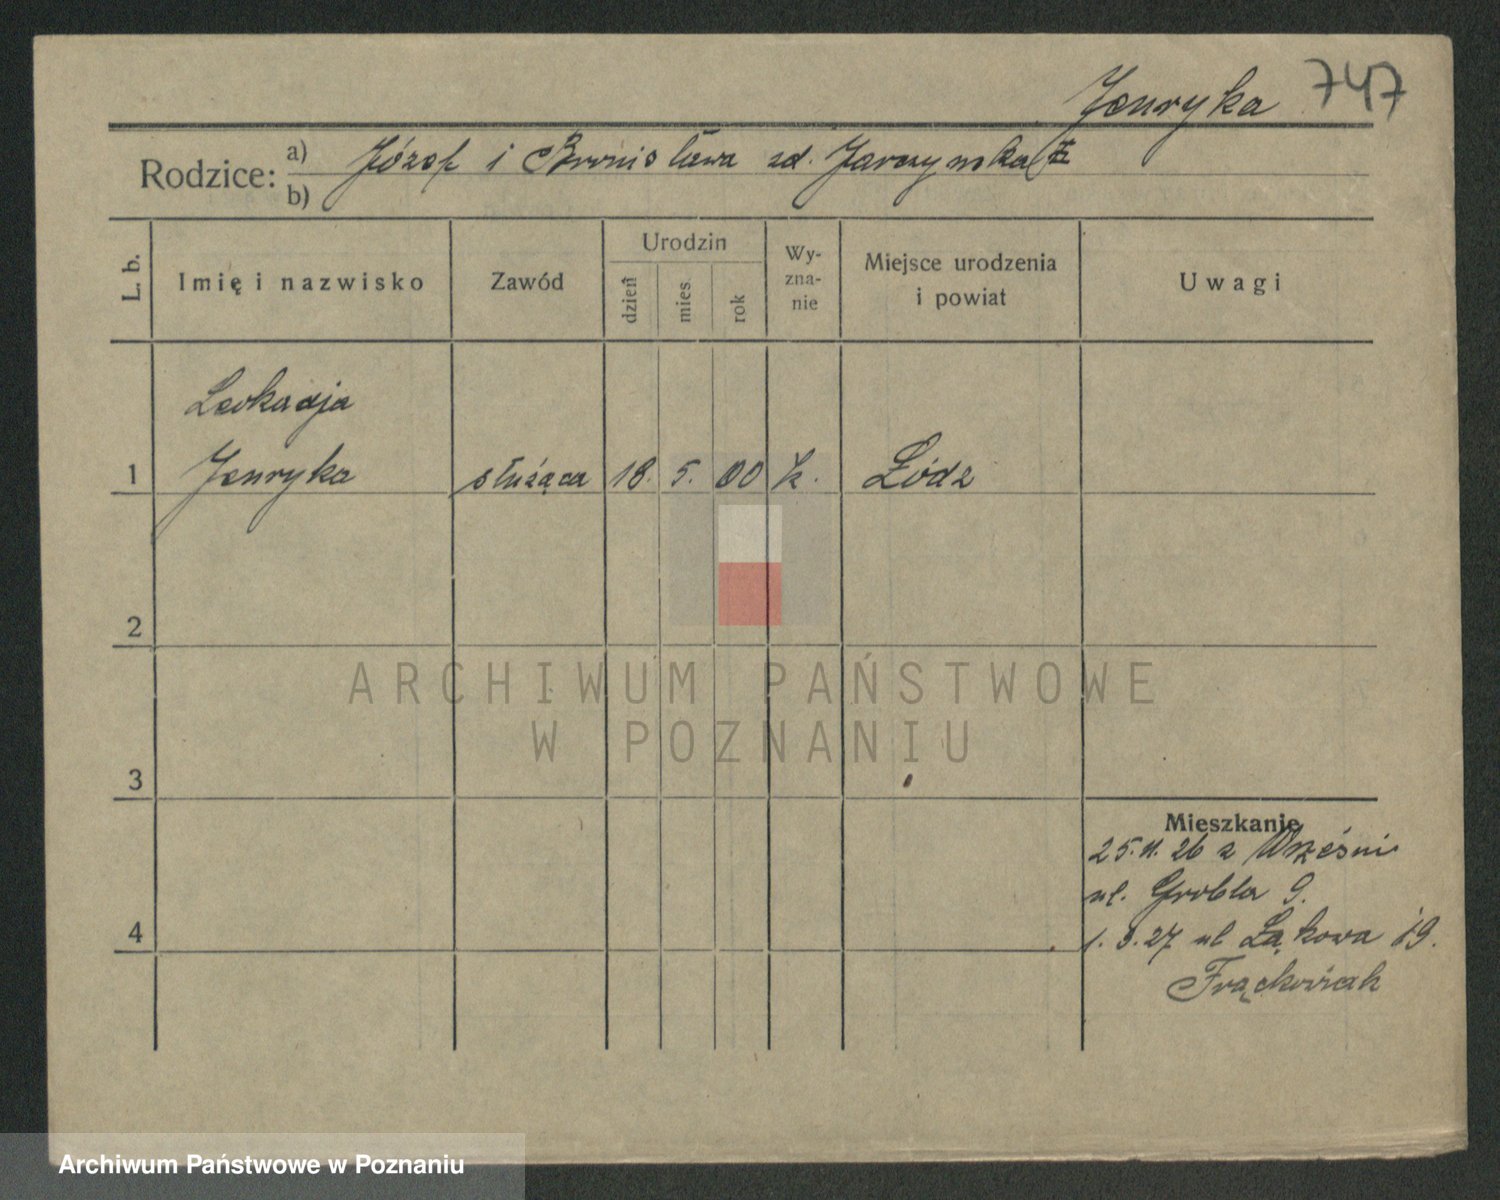 Jenryka 747
Rodzice: a) b) Józef i Bronisława zd. Jarczyńska
L. b.
Imię i nazwisko
Zawód
Urodzin
dzień
mies.
rok
Wy-
zna-
nie
Miejsce urodzenia
i powiat
Uwagi
Leokadja
1 Jenryka służąca 18. 5. 00 k. Łódz
2
ARCHIWUM PAŃSTWOWE
W POZNANIU
3
Mieszkanie
25. 11. 26 z Wrześni
ul. Grobla 9.
4
1. 3. 27 ul Łąkowa 19.
Frąckowiak
Archiwum Państwowe w Poznaniu